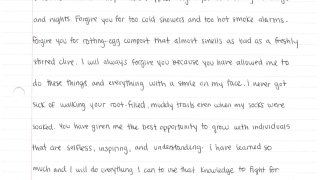 and nights. Forgive you for too cold showers and too hot smoke alarms.
Forgive you for rotting-egg compost that almost smells as bad as a freshly
stirred clive. I will always forgive you because you have allowed me to
do these things and everything with a smile on my face. I never got
sick of walking your root-filled, muddy trails even when my socks were
soaked. You have given me the best opportunity to grow with individuals
that are selfless, inspiring, and understanding. I have learned so
much and I will do everything I can to use that knowledge to fight for